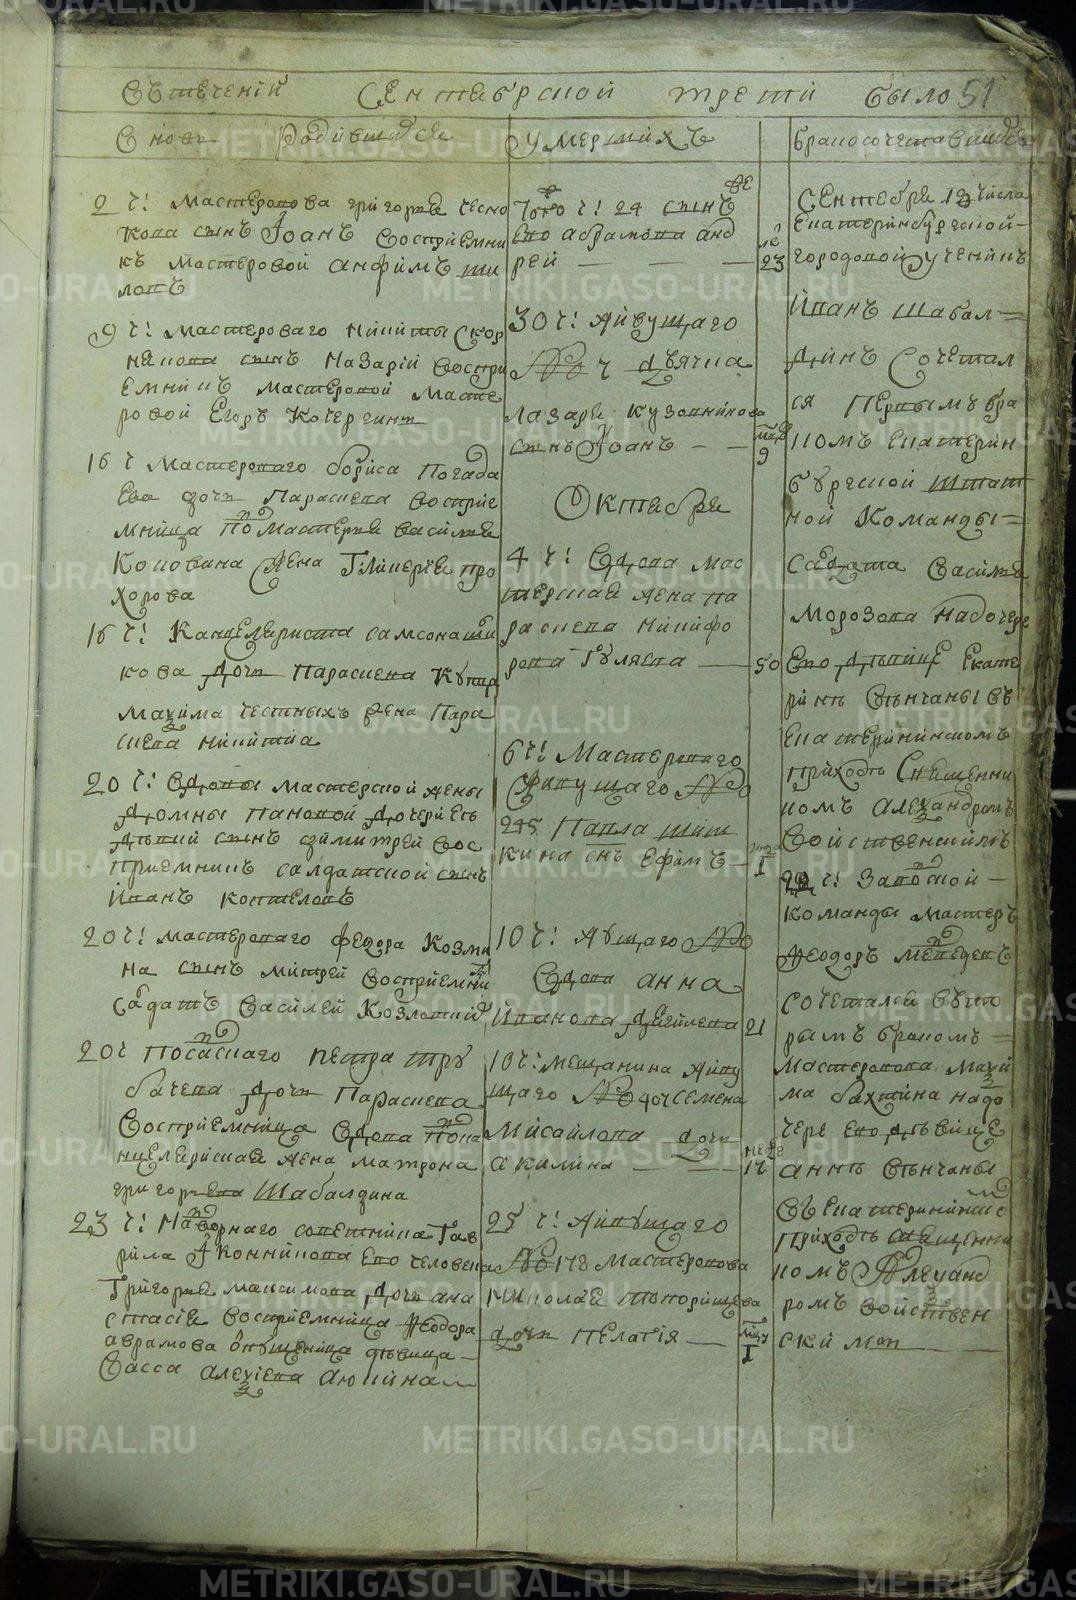 Сентябрской трети было 51
Родившися
умерших
бракосочетавшихся
2 ч: мастеровова григорья чесно
кова сынъ Іоанъ восприемни
къ мастеровой анфимъ ши
ловъ
9 ч: мастероваго никиты скор
някова сынъ назарій воспри
емникъ мастеровой масте
ровой Егоръ Кочергинъ
16 ч мастероваго бориса Погада
ева дочь Параскева восприе
мница помастерья василья
Коновина жена Гликерїя про
хорова
16 ч: Канцеляриста самсона
кова дочь Параскева Купца
маѯима честныхъ жена Пара
скева никитина
20 ч: вдовы мастерской жены
домны пановой дочери ея
дѣвки сынъ димитрей вос
приемникъ салдатской сынъ
Иванъ котеловъ
20 ч: мастероваго федора Козми
на сынъ митрей восприемни
садатъ василей Козловский
20 ч посадскаго петра тру
бачева дочь Параскева
восприемница вдова пока
нцелярская жена матрона
григорьева Шабалдина
23 ч: надворнаго советника Гав
рила Иконникова ево человека
Григорья максимова дочь ана
стасїя восприемница феодора
аврамова отпущеница дѣвица
васса алеѯіева аюкина
ч: 24 сынъ
ево абрамова анд
рей
23
30 ч: живущаго
№ 4 дьячка
лазаря кузовникова
сынъ Іоанъ
9
Октября
4 ч: вдова мас
терская жена па
раскева никифо
рова Гуляева 50
6 ч: мастероваго
живущаго №
245 Павла шит
кина снъ Ефимъ 1
10 ч: жущаго №
вдова анна
Иванова 21
10 ч: мещанина живу
щаго № 404 семена
мисайлова дочь
акилина 12
25 ч: живущаго
№ 178 мастеровова
николая топорищева
дочь пелагїя 1
Сентября 12 числа
Екатеринбургской
городовой ученикъ
Иванъ шабал
динъ сочетал
ся первымъ бра
комъ екатерин
бургской штат
ной Команды
садата василья
морозова на дочере
ево дѣвице екате
ринѣ вѣнчаны въ
екатерининскомъ
приходѣ священни
комъ алеѯандромъ
войственскимъ
ч: заводской
команды мастеръ
феодоръ медведевъ
сочетался вто
рымъ бракомъ
мастеровова маѯи
ма бахтина надо
чере ево дѣвице
аннѣ вѣнчаны
въ екатерининс
приходѣ священни
комъ Алеѯанд
ромъ войствен
скимъ